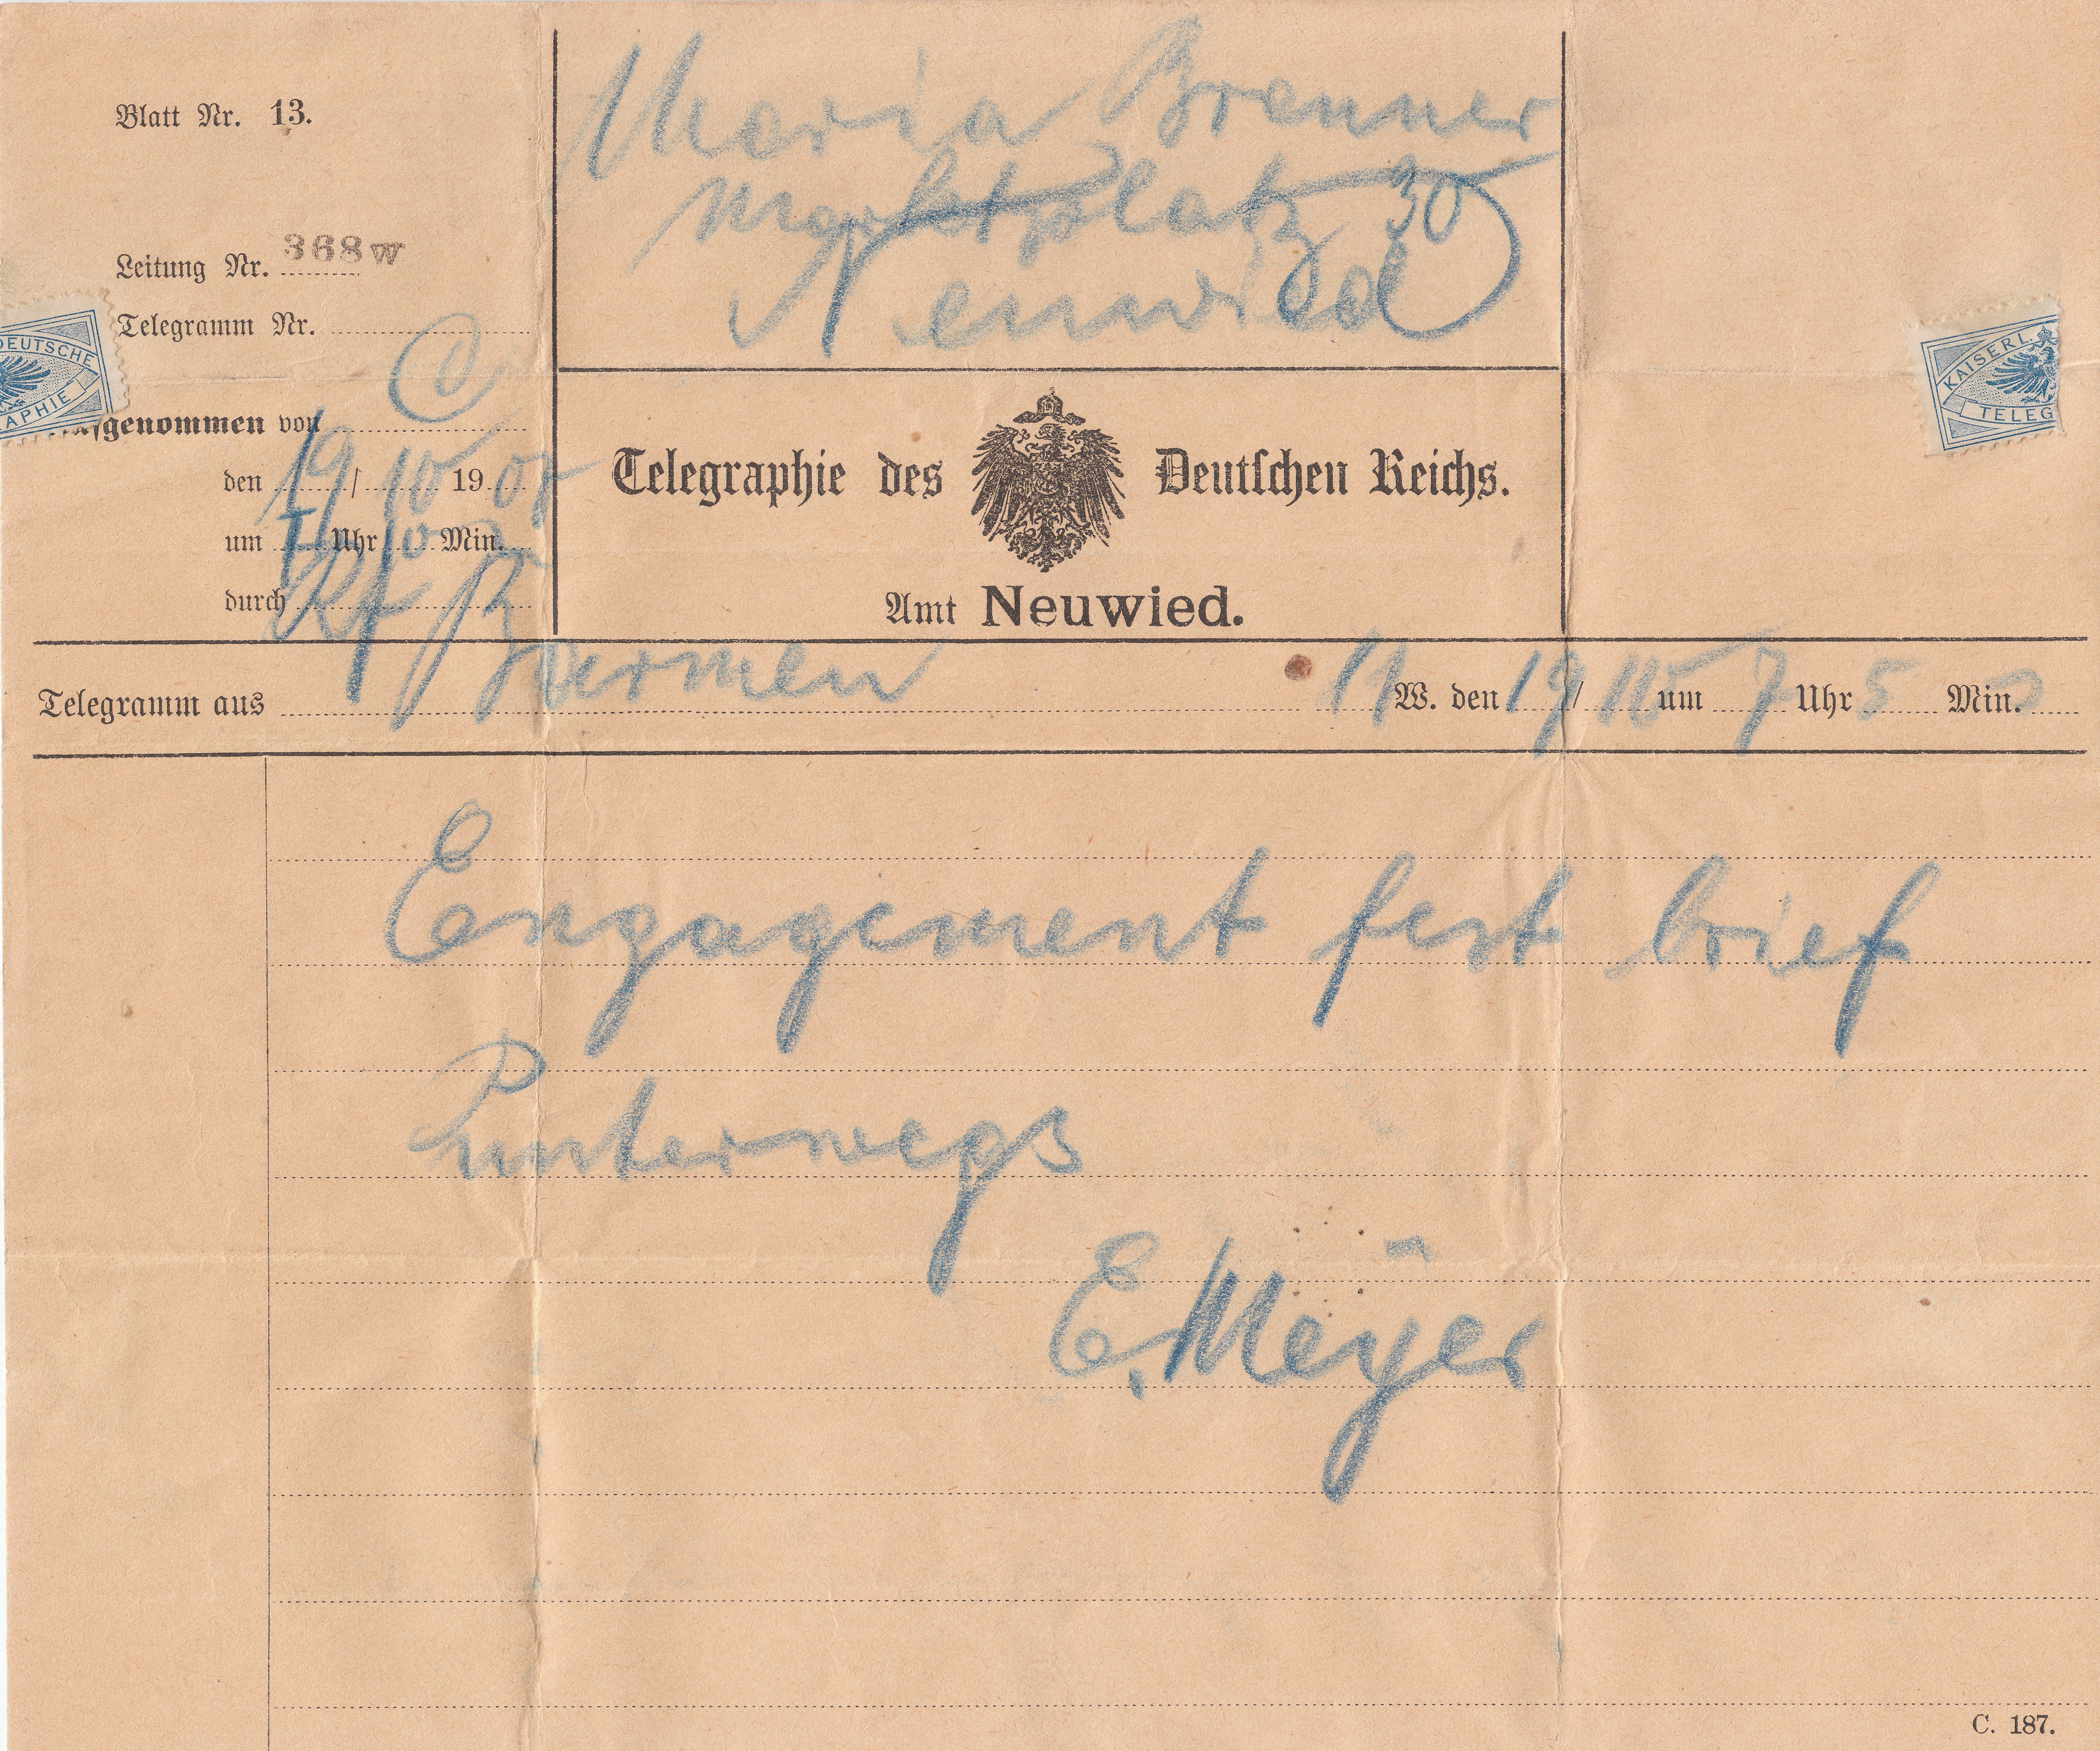 Maria Brenner
Marktplatz 30
Neuwied
Blatt Nr. 13.
Leitung Nr. 368w
Telegramm Nr.
DEUTSCHE
APHIE
KAISERL.
TELEG
genommen von
den 19/10 19
um Uhr 10 Min.
durch
Telegraphie des Deutschen Reichs.
Amt Neuwied.
Telegramm aus Barmen 11 W. den 19/ um 7 Uhr 5 Min.
Engagement fest brief
unterwegs
E. Meyer
C. 187.